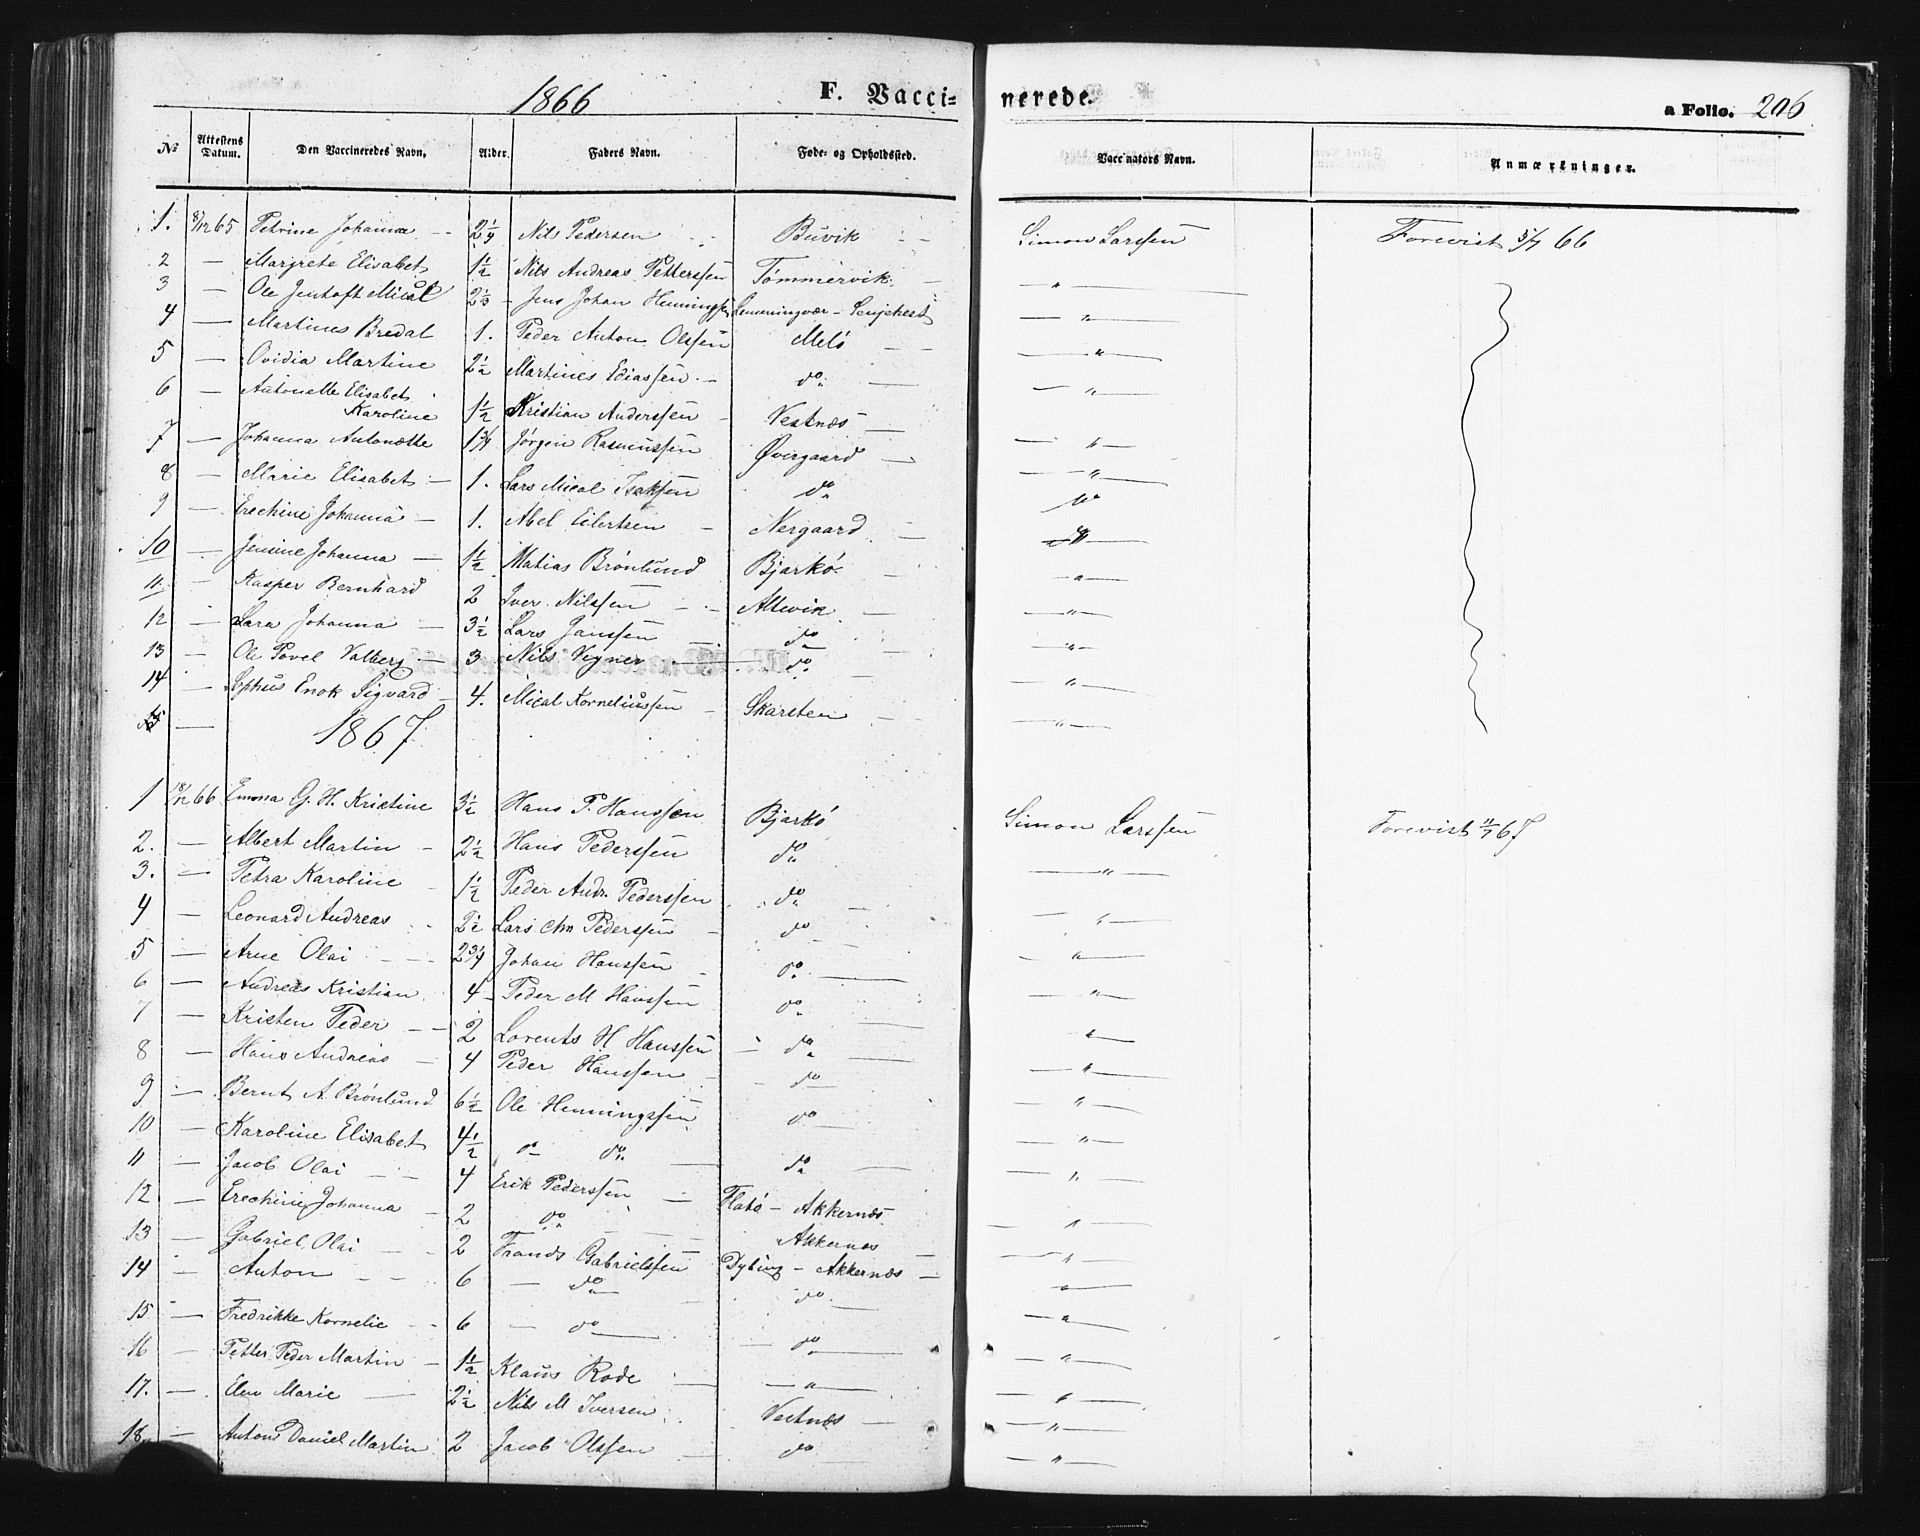 1866 F. Vacci- nerede. a Folio. 206
No Attestens Datum. Den Vaccineredes Navn. Alder. Faders Navn. Føde- og Opholdssted. Vaccinators Navn. Anmærkninger.
1. 8/12 65 Petrine Johanna 2 1/4 Nils Pedersen Buvik Simon Larssen Forevist 5/7 66
2 — Margrete Elisabet 1 1/2 Nils Andreas Petterssen Tømmervik — " —
3 — Ole Jenhoft Mical 2 1/3 Jens Johan Henningsen Lemmingvær - Senjehest — " —
4 — Martines Bredal 1. Peder Anton Olssen Melö — " —
5 — Ovidia Martine 2 1/2 Martines Ediassen do — " —
6 — Antonette Elisabet
Karoline 1 1/2 Kristian Anderssen Vestnæs — " —
7 — Johanna Antonette 1 3/4 Jørgen Rasmussen Øvergaard — " —
8 — Marie Elisabet 1. Lars Mical Isaksen do "
9 — Erechine Johanna 1. Abel Eilertsen Nergaard — " —
10 — Jensine Johanna 1 1/2 Matias Brönlund Bjarkö — " —
11 — Kasper Bernhard 2 Iver Nilssen Allevik — " —
12 — Lara Johanna 3 1/2 Lars Janssen do — " —
13 — Ole Povel Valberg 3 Nils Vigner do — " —
14 — Sophus Enok Sigvard 4. Mical Korneliussen Skarsten — " —
1867
1 18/12 66 Emma G. H. Kristine 3 1/2 Hans P. Hanssen Bjarkö Simon Larssen Forevist 11/7 67
2. — Albert Martin 2 1/2 Hans Pederssen do — " —
3. — Petra Karoline 1 1/2 Peder Andr. Pederssen do — " —
4 — Leonard Andreas 2 1/2 Lars Chn Pederssen do — " —
5 — Arne Olai 2 3/4 Johan Hanssen do — " —
6 — Andreas Kristian 4 Peder M Hanssen do — " —
7 — Kristen Peder 2 Lorents H Hanssen do — " —
8 — Hans Andreas 4 Peder Hanssen do — " —
9 — Bernt A. Brönlund 6 1/2 Ole Henningssen do — " —
10 — Karoline Elisabet 4 1/2 do do do — " —
11 — Jacob Olai 4 Erik Pederssen Flatö - Akkernæs — " —
12 — Erechine Johanna 2 do Akkernæs — " —
13 — Gabriel Olai 2 Frands Gabrielssen Dybing - Akkernæs — " —
14 — Anton 6 — do do — " —
15 — Fredrikke Kornelie 6 — do do — " —
16 — Petter Peder Martin 1 1/2 Klaus Rode — " — — " —
17. — Elen Marie 2 1/2 Nils M Iversen Vestnæs — " —
18 — Anton Daniel Martin 2 Jacob Olssen do — " —